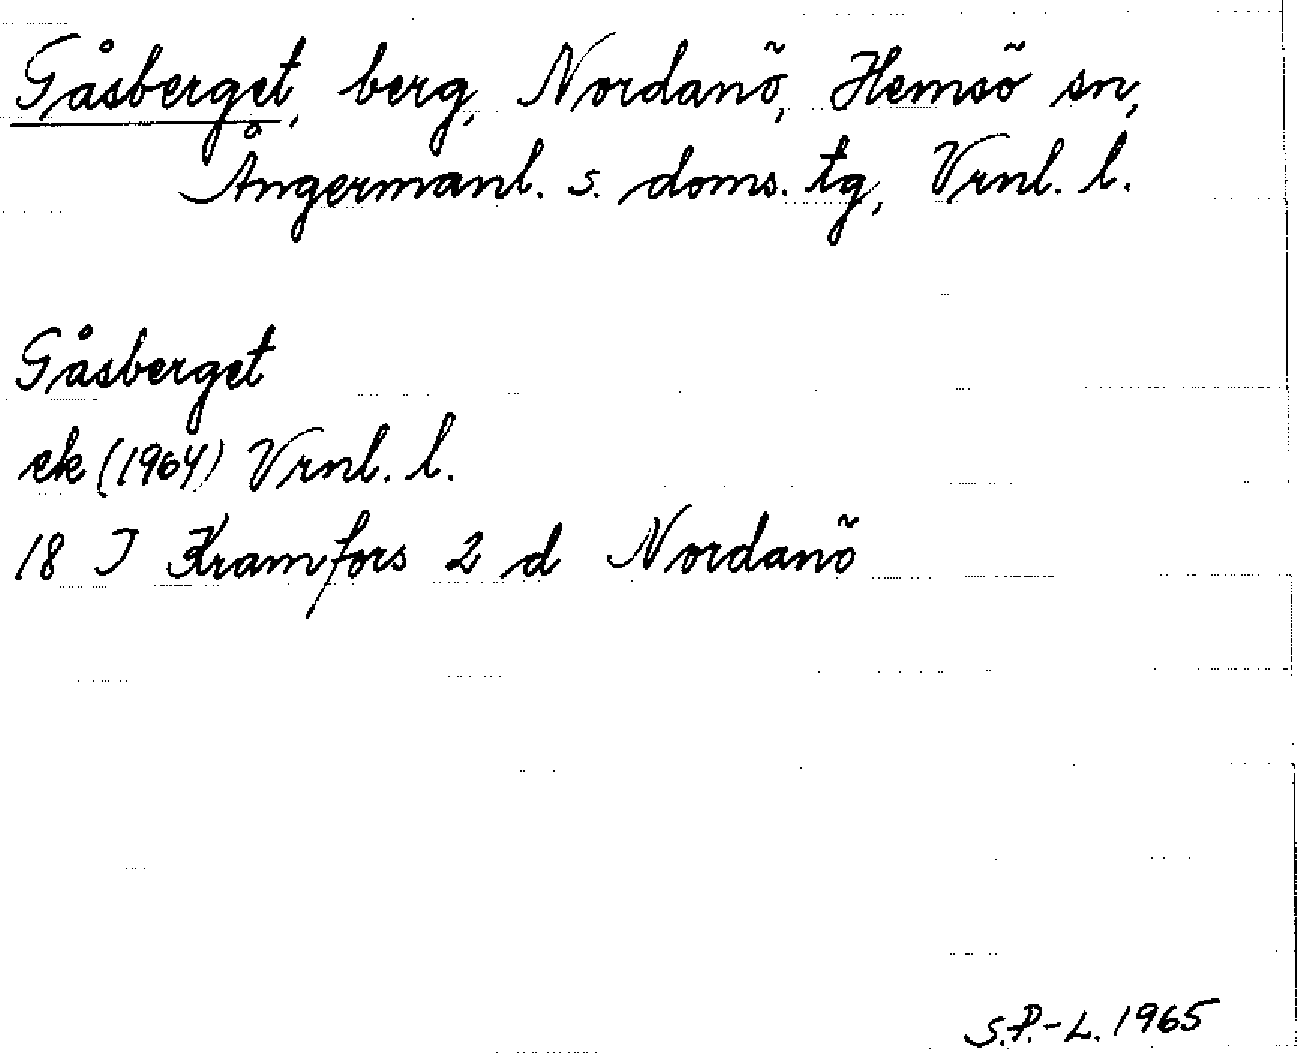 Gåsberget, berg, Nordanö, Hemsö sn,
Ångermanl. s. doms. tg, Vrnl. l.
Gåsberget
ek (1964) Vrnl. l.
18 I Kramfors 2 d Nordanö
S.P.-L. 1965